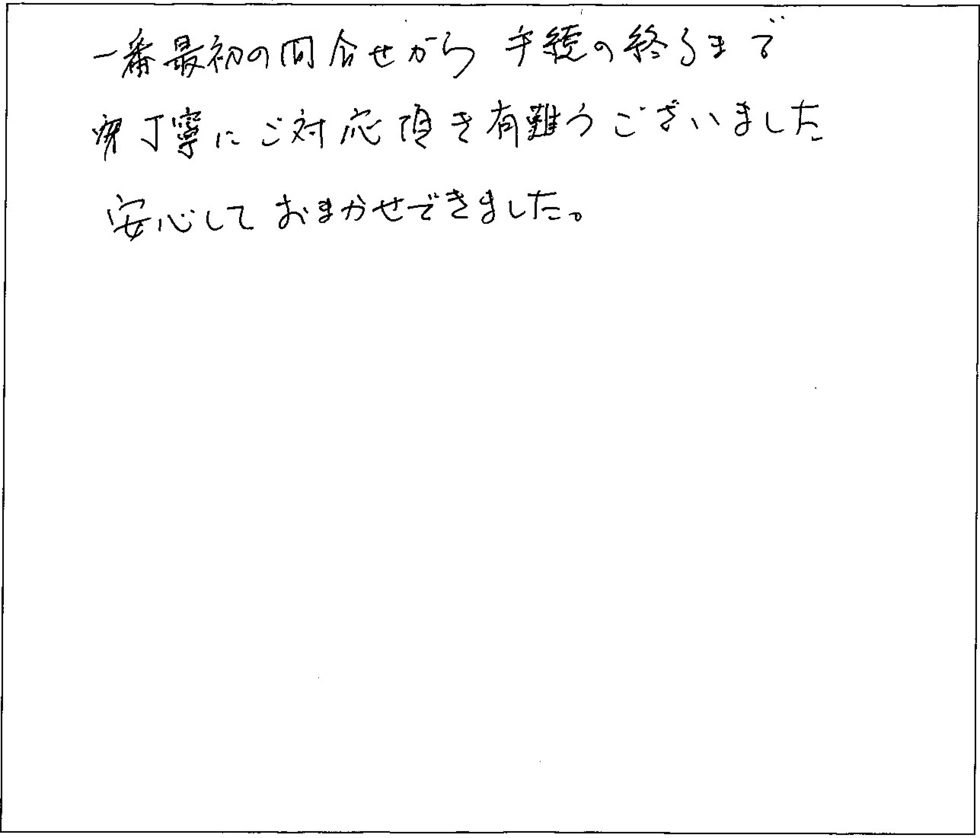 一番最初の問合せから 手続の終るまで
丁寧にご対応頂き有難うございました
安心しておまかせできました。